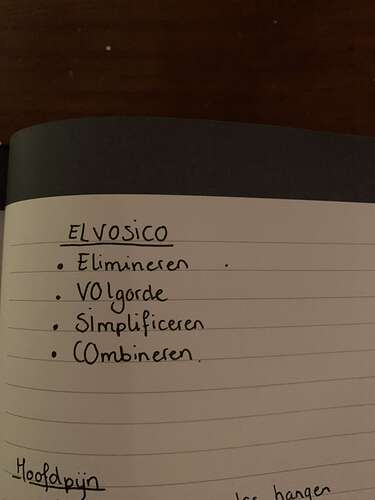 ELVOSICO
• Elimineren .
• VOlgorde
• SImplificeren
• COmbineren.
Hoofdpijn
hangen